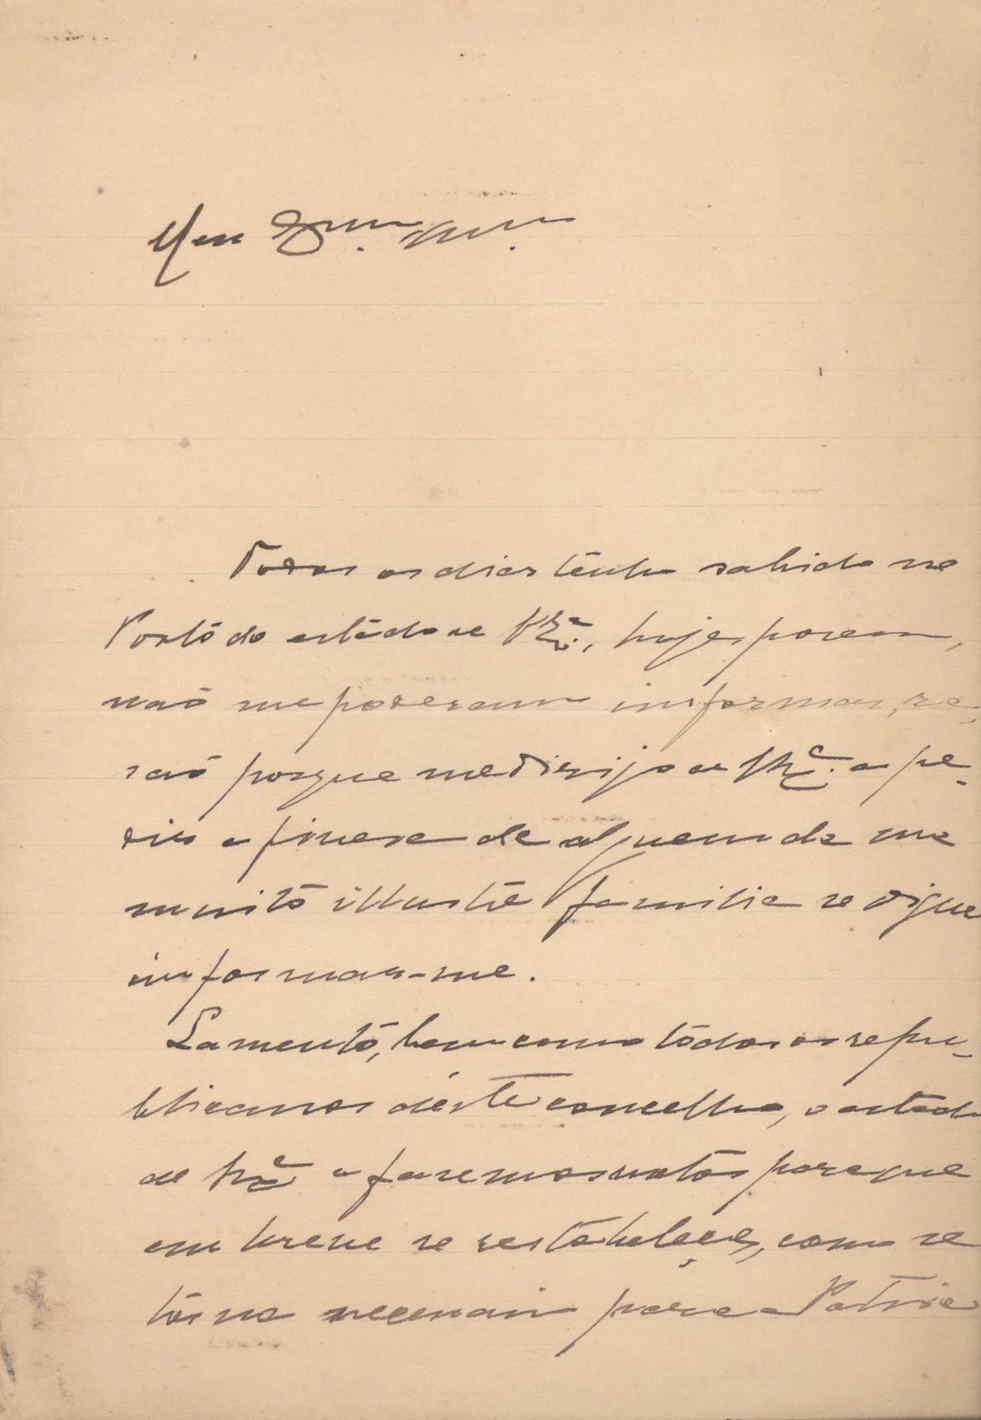 Meu Exmo. Amo.
Todos os dias tenho sahido no
Porto do estado de V. Exa., hoje, porem,
não me poderam informar, ra-
são porque me dirijo a V. Exa. a pe-
dir a fineza de alguem da sua
muito illustre familia se digne
informar-me.
Lamento, bem como todos os repu-
blicanos d'este concelho, o estado
de V. Exa. e fazemos votos para que
em breve se restabeleça, como se
torna necessario para a Patria